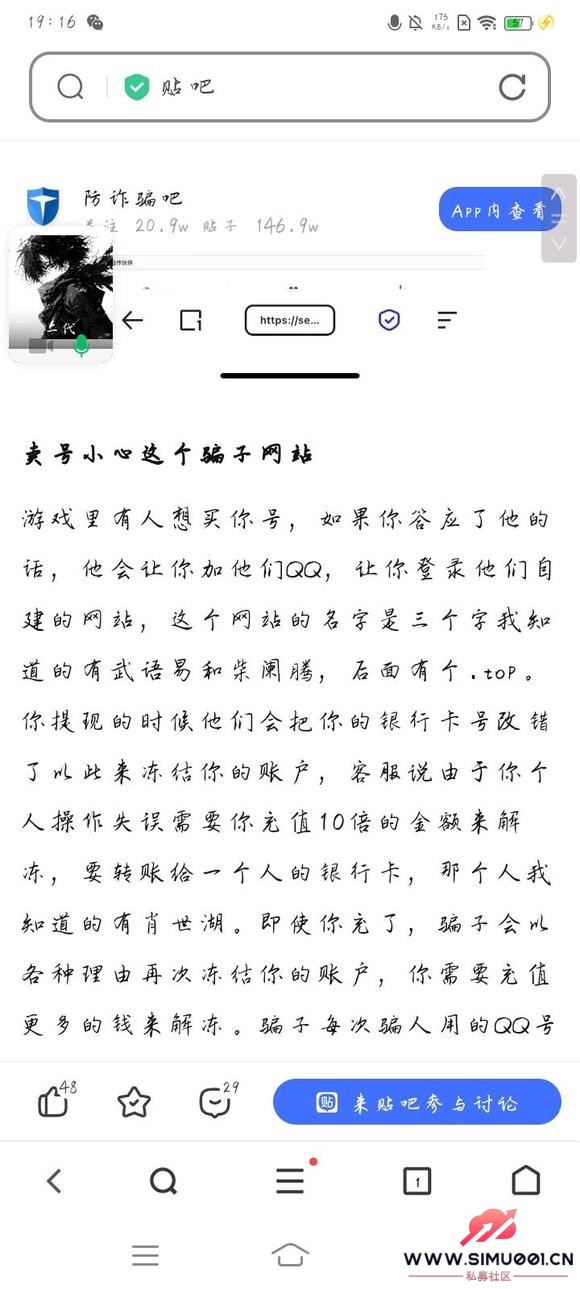 19:16
175
KB/s
57
贴吧
防诈骗吧
关注 20.9w 贴子 146.9w
App内查看
合作伙伴
二代
https://se...
卖号小心这个骗子网站
游戏里有人想买你号，如果你答应了他的
话，他会让你加他们QQ，让你登录他们自
建的网站，这个网站的名字是三个字我知
道的有武语易和柴阑腾，后面有个.top。
你提现的时候他们会把你的银行卡号改错
了以此来冻结你的账户，客服说由于你个
人操作失误需要你充值10倍的金额来解
冻，要转账给一个人的银行卡，那个人我
知道的有肖世湖。即使你充了，骗子会以
各种理由再次冻结你的账户，你需要充值
更多的钱来解冻。骗子每次骗人用的QQ号
48
29
贴 来贴吧参与讨论
1
WWW.SIMU001.CN
私募社区